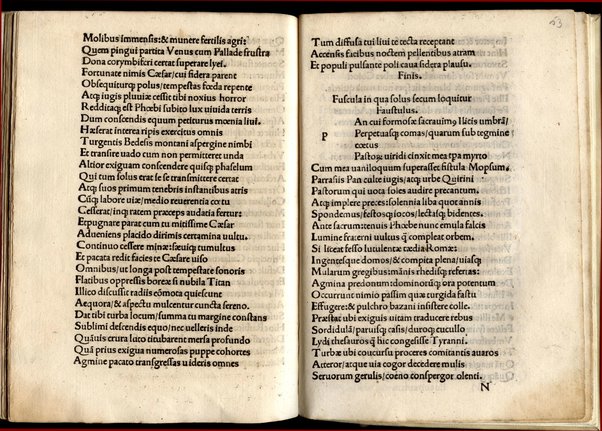 Molibus immensis:& munere fertilis agri:
Quem pingui partita Venus cum Pallade frustra
Dona corymbiferi certat superare lyei.
Fortunate nimis Cæsar/cui sidera parent
Obsequiturq; polus/tempestas fœda repente
Atq; iugis pluuiæ cessit tibi noxius horror
Redditaq; est Phœbi subito lux uiuida terris
Dum conscendis equum petiturus mœnia liui.
Hæserat interea ripis exercitus omnis
Turgentis Bedesis montani aspergine nimbi
Et transire uado cum non permitteret unda
Altior exiguam conscendere quisq; phaselum
Qui tum solus erat se se transmittere certat
Atq; suos primum tenebris instantibus atris
Cūq; labore uiæ/medio reuerentia cœtu
Cesserat/inq; ratem præceps audatia fertur:
Etpugnare parat cum tu mitissime Cæsar
Adueniens placido dirimis certamina uultu.
Continuo cessere minæ:sæuiq; tumultus
Et pacata redit facies te Cæsare uiso
Omnibus/ut longa post tempestate sonoris
Flatibus oppressis boreæ si nubila Titan
Illico discussit radiis eōmota quiescunt
Aequora/& aspectu mulcentur cuncta sereno.
Dat tibi turba locum/summa tu margine constans
Sublimi descendis equo/nec uelleris inde
Quāuis crura luto titubarent mersa profundo
Quā prius exigua numerosas puppe cohortes
Agmine pacato transgressas uideris omnes
63
Tum diffusa tui liui te tecta receptant
Accensis facibus noctem pellentibus atram
Et populi pulsante poli caua sidera plausu.
Finis.
Fuscula in qua solus secum loquitur
Faustulus.
An cui formosæ sacrauimꝰ Ilicis umbrā/
P Perpetuasq; comas/quarum sub tegmine
cœtus
Pastoꝝ uiridi cinxit mea tpa myrto
Cum mea uaniloquum superasset fistula Mopsum.
Parrasiis Pan culte iugis/atq; urbe Quirini
Pastorum qui uota soles audire precantum.
Atq; implere preces:solennia liba quot annis
Spondemus/festosq; iocos/lectasq; bidentes.
Ante sacram:tenuis Phœbe nunc emula falcis
Lumine fraterni uultus q̄ compleat orbem.
Si liceat fesso lutulentæ tædia Romæ:
Ingentesque domos/& compita plena/uiasq;
Mularum gregibus:mānis rhedisq; refertas:
Agmina predonum:dominorūq; ora potentum
Occurrunt nimio passim quæ turgida fastu
Effugere:& pulchro bazani insistere colle.
Præstat ubi exiguis uitam traducere rebus
Sordidulā/paruisq; casis/duroq; cucullo
Lydi thesauros q̄ hic congesisse Tyranni.
Turbæ ubi coucursu proceres comitantis auaros
Atteror/atque uia cogor decedere mulis
Seruorum gerulis/cœno conspergor olenti.
N